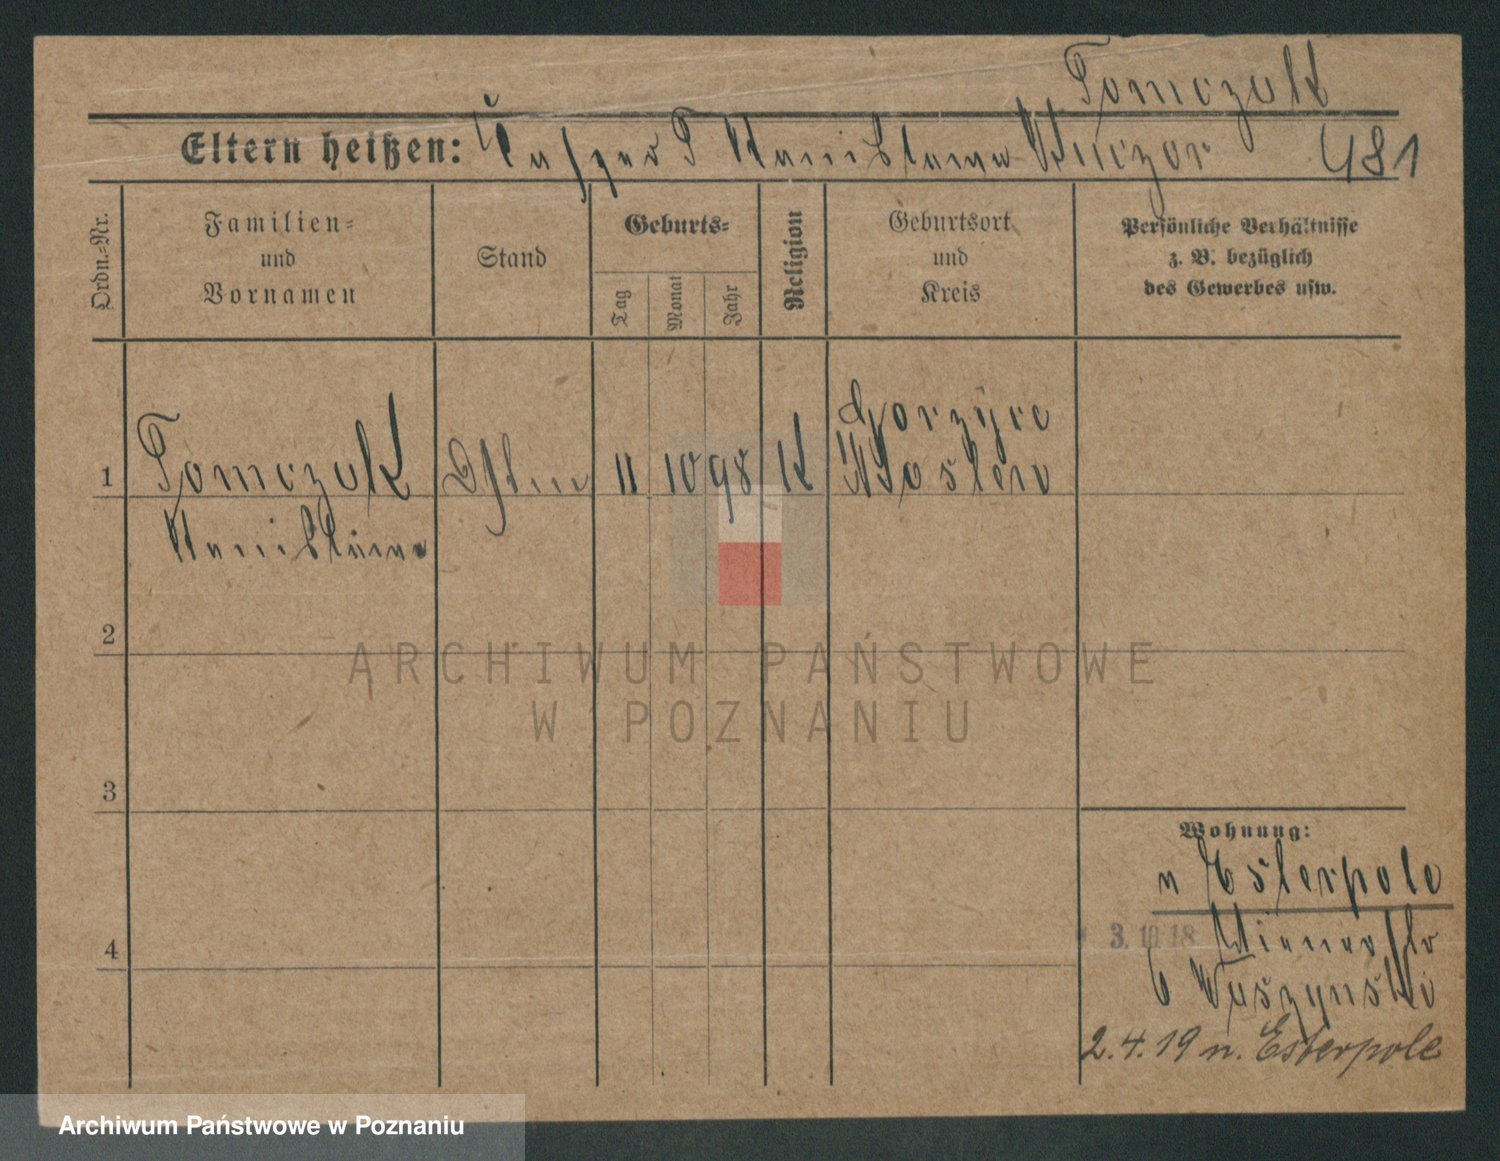 Tomczak
Eltern heißen: Kasper T Stanislawa Kaczor 481
Ordn.-Nr.
Familien-
und
Vornamen
Stand
Geburts-
Tag
Monat
Jahr
Religion
Geburtsort
und
Kreis
Persönliche Verhältnisse
z. B. bezüglich
des Gewerbes usw.
Gorzyce
1 Tomczak 11 10 98 K Kosten
Stanislawa
2
3
4
Wohnung:
n Esterpole
3. 10 18 Wienerstr
6 Kaszynski
2.4.19 n. Esterpole
ARCHIWUM PAŃSTWOWE
W POZNANIU
Archiwum Państwowe w Poznaniu